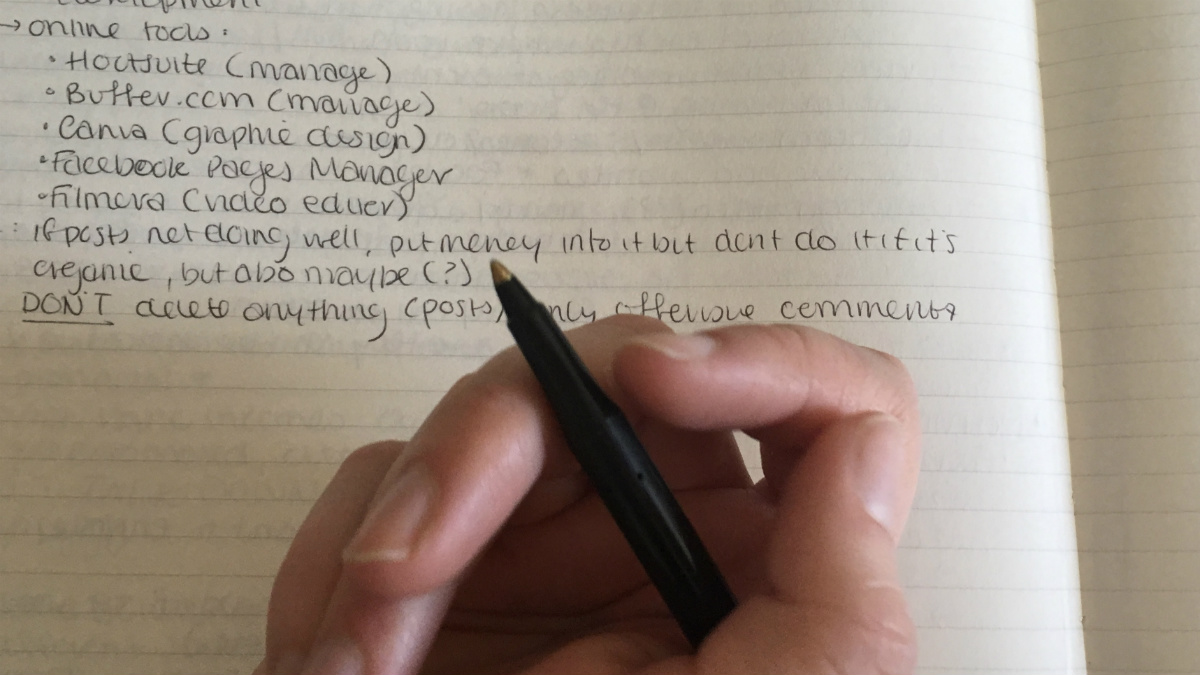 → online tools:
• Hootsuite (manage)
• Buffer.com (manage)
• Canva (graphic design)
• Facebook Pages Manager
• Filmora (video editer)
: if posts not doing well, put money into it but dont do it if it's
organic, but also maybe (?)
DON'T delete anything (posts) only offensive comments